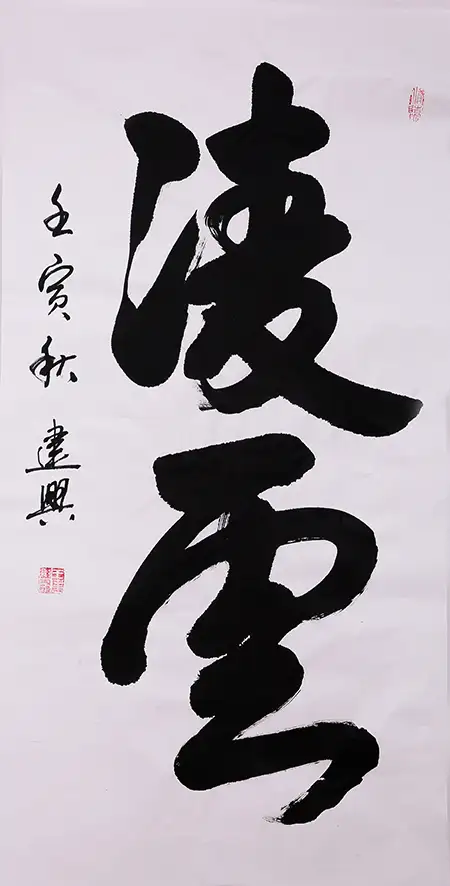 凌雲
壬寅秋 建興